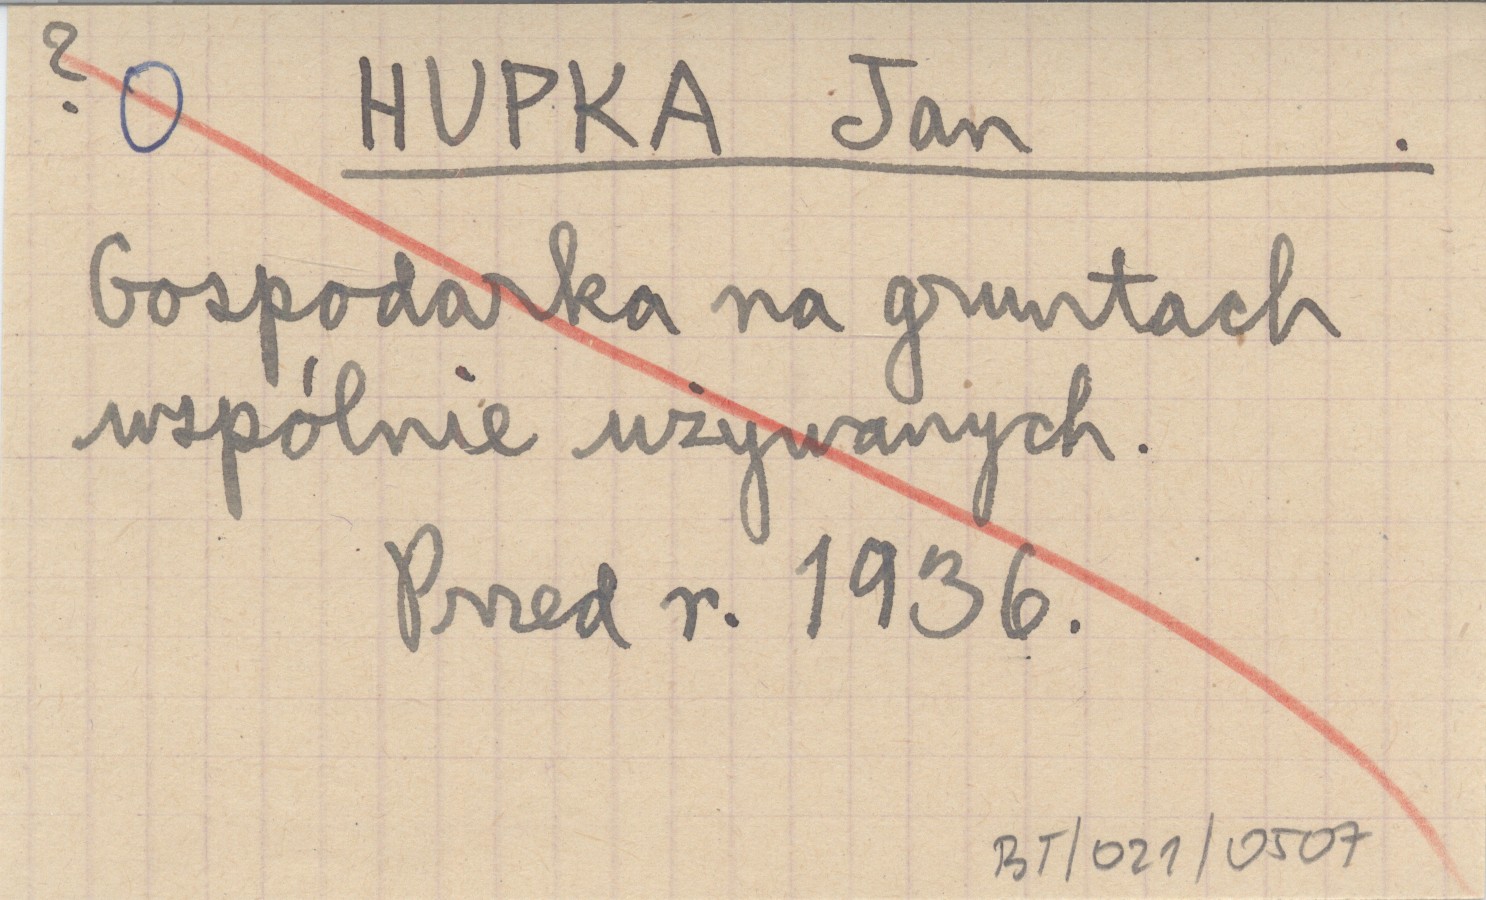 ? O HUPKA Jan .
Gospodarka na gruntach
wspólnie używanych.
Przed r. 1936.
BT/021/0507